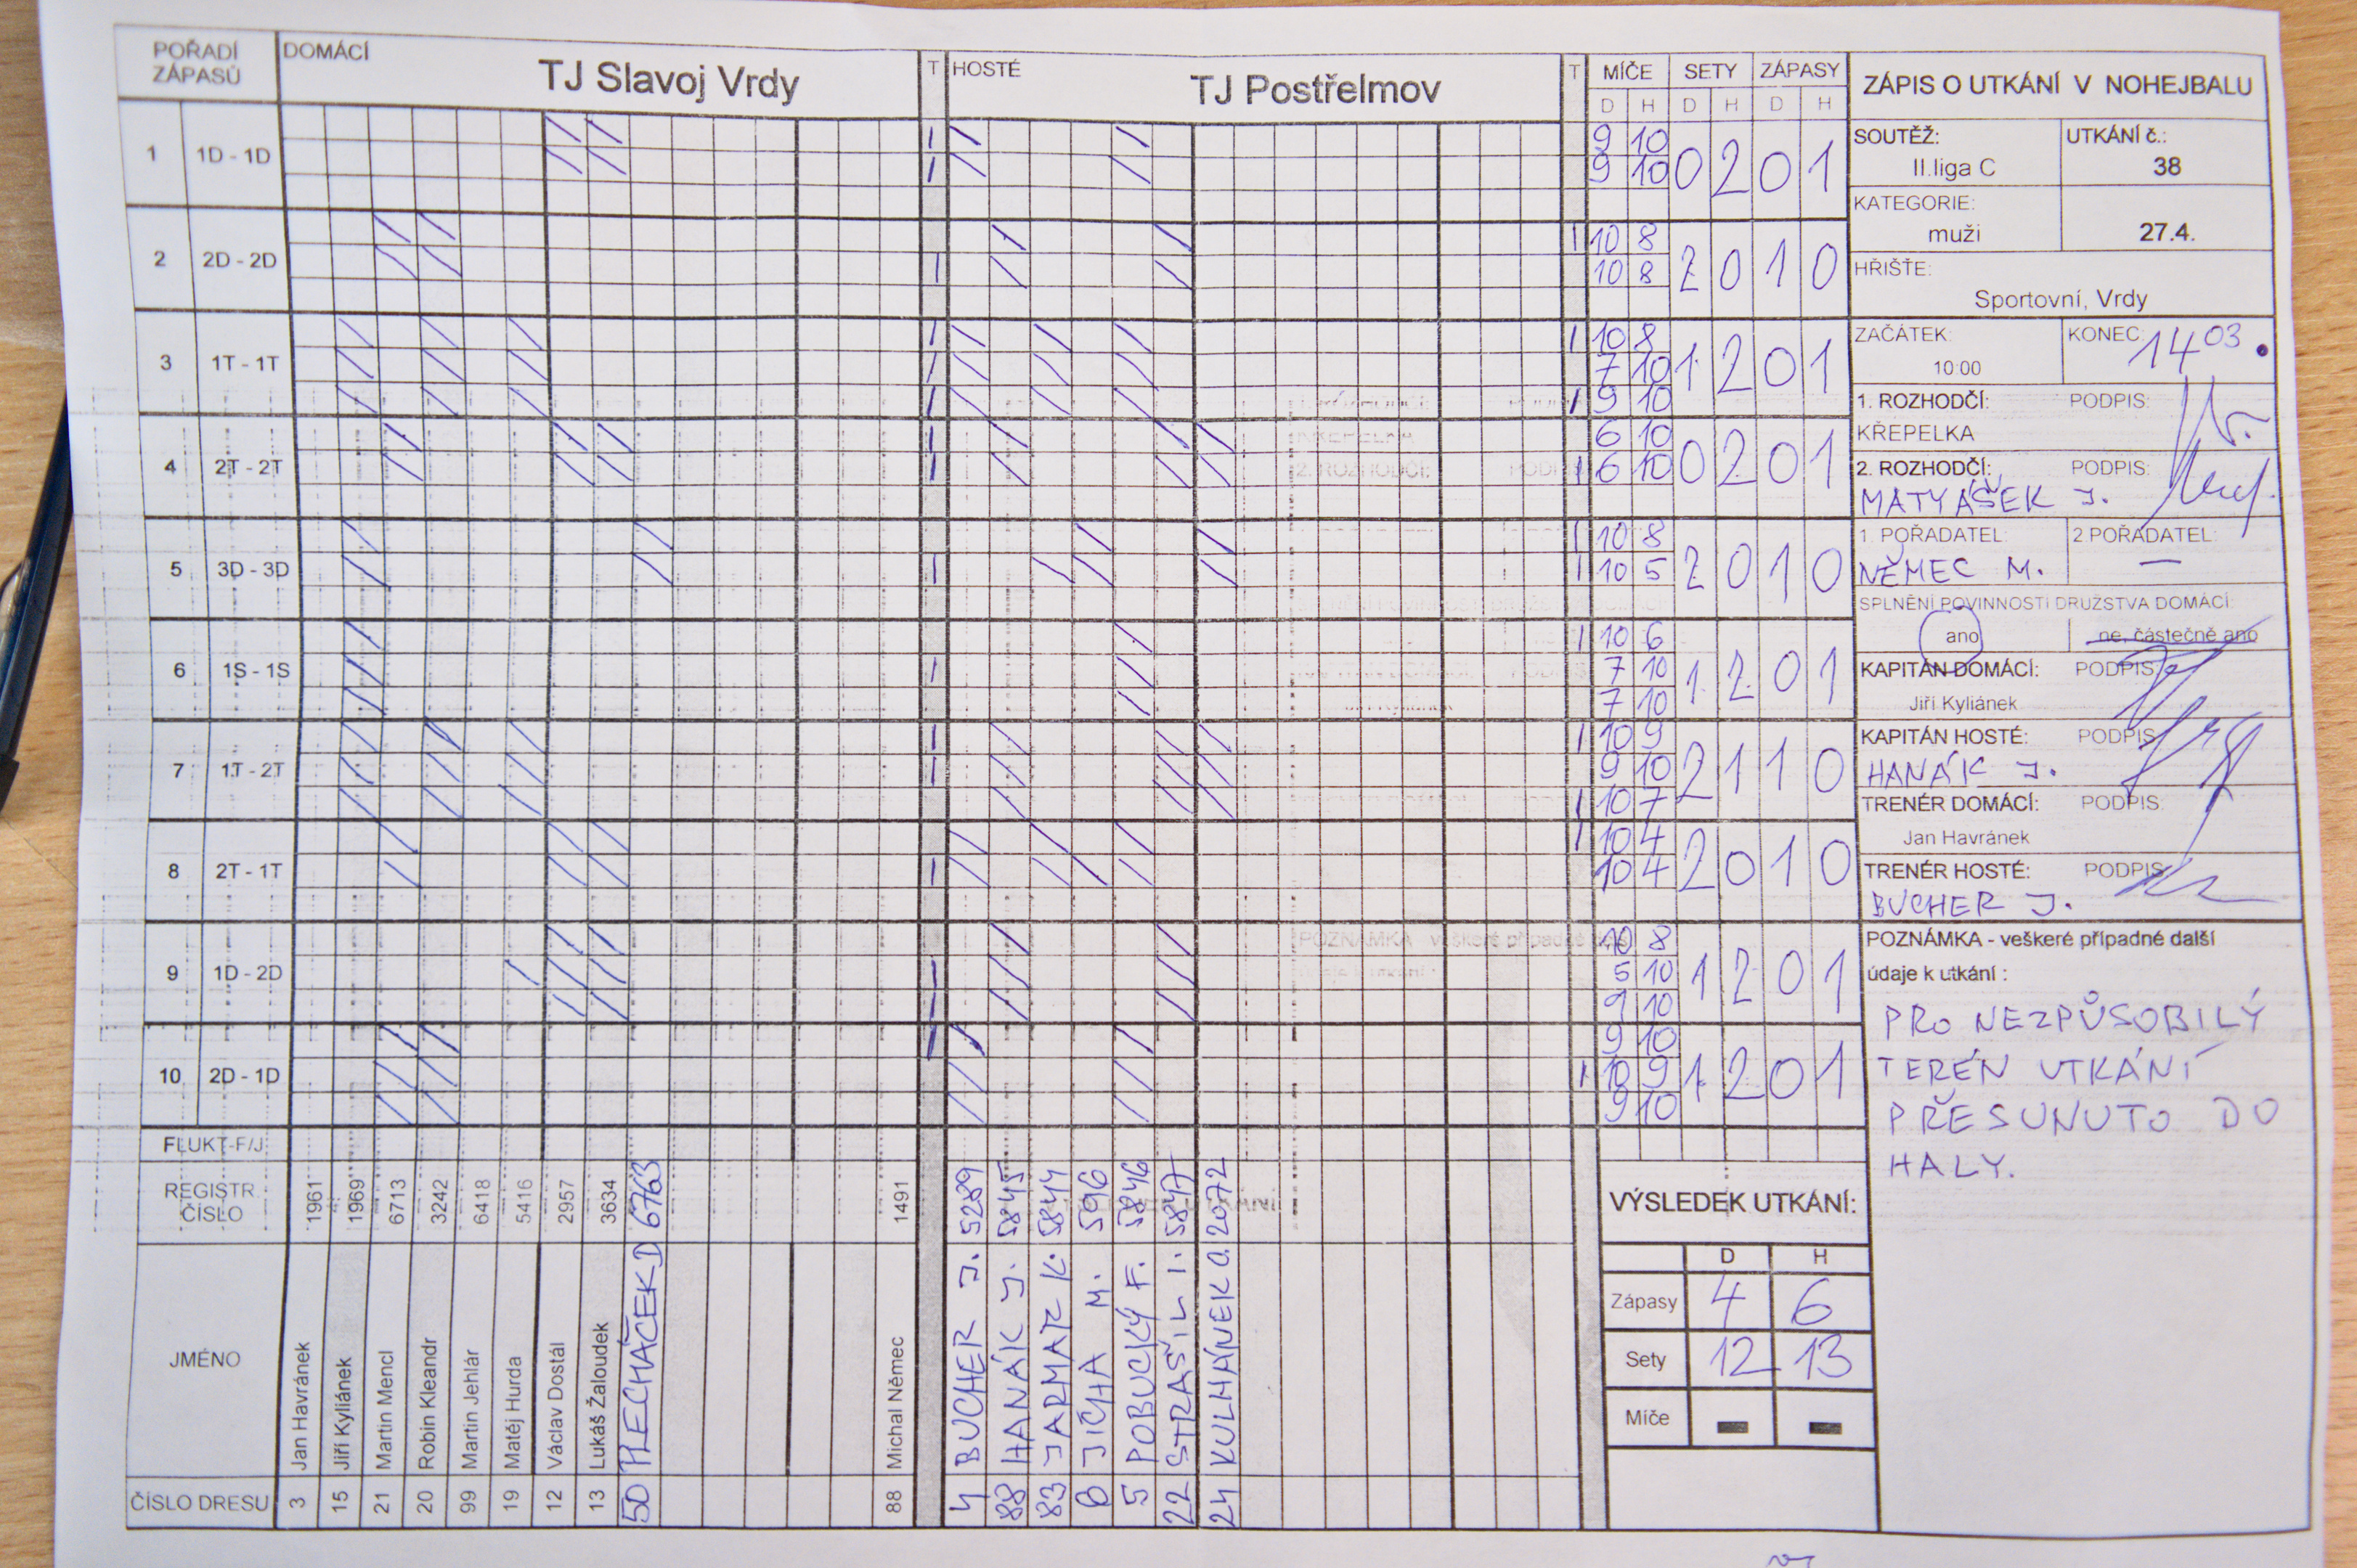 POŘADÍ ZÁPASŮ DOMÁCÍ TJ Slavoj Vrdy T HOSTÉ TJ Postřelmov T MÍČE SETY ZÁPASY
D H D H D H
1 1D - 1D 9 10 0 2 0 1
9 10
2 2D - 2D 10 8 2 0 1 0
10 8
3 1T - 1T 10 8 1 2 0 1
7 10
9 10
4 2T - 2T 6 10 0 2 0 1
6 10
5 3D - 3D 10 8 2 0 1 0
10 5
6 1S - 1S 10 6 1 2 0 1
7 10
7 10
7 1T - 2T 10 9 2 1 1 0
9 10
10 7
8 2T - 1T 10 4 2 0 1 0
10 4
9 1D - 2D 10 8 1 2 0 1
5 10
9 10
10 2D - 1D 9 10 1 2 0 1
10 9
9 10
FLUKT-F/J
REGISTR. ČÍSLO
JMÉNO
ČÍSLO DRESU
3 Jan Havránek 1961
15 Jiří Kyliánek 1969
21 Martin Mencl 6713
20 Robin Kleandr 3242
99 Martin Jehlár 6418
19 Matěj Hurda 5416
12 Václav Dostál 2957
13 Lukáš Žaloudek 3634
50 PLECHÁČEK D 6763
88 Michal Němec 1491
4 BUCHER J. 5289
88 HANÁK J. 5845
83 JARMAR K. 5844
8 JÍCHA M. 596
5 POBUCKÝ F. 5846
22 STRAŠIL I. 5847
24 KULHÁNEK O. 2072
VÝSLEDEK UTKÁNÍ:
D H
Zápasy 4 6
Sety 12 13
Míče - -
ZÁPIS O UTKÁNÍ V NOHEJBALU
SOUTĚŽ: UTKÁNÍ č.:
II.liga C 38
KATEGORIE:
muži 27.4.
HŘIŠTE:
Sportovní, Vrdy
ZAČÁTEK: KONEC:
10:00 14 03.
1. ROZHODČÍ: PODPIS:
KŘEPELKA
2. ROZHODČÍ: PODPIS:
MATYÁŠEK J.
1. POŘADATEL: 2.POŘADATEL:
NĚMEC M. —
SPLNĚNÍ POVINNOSTÍ DRUŽSTVA DOMÁCÍ:
ano ne, částečně ano
KAPITÁN DOMÁCÍ: PODPIS:
Jiří Kyliánek
KAPITÁN HOSTÉ: PODPIS:
HANÁK J.
TRENÉR DOMÁCÍ: PODPIS:
Jan Havránek
TRENÉR HOSTÉ: PODPIS:
BUCHER J.
POZNÁMKA - veškeré případné další
údaje k utkání :
PRO NEZPŮSOBILÝ
TERÉN UTKÁNÍ
PŘESUNUTO DO
HALY.